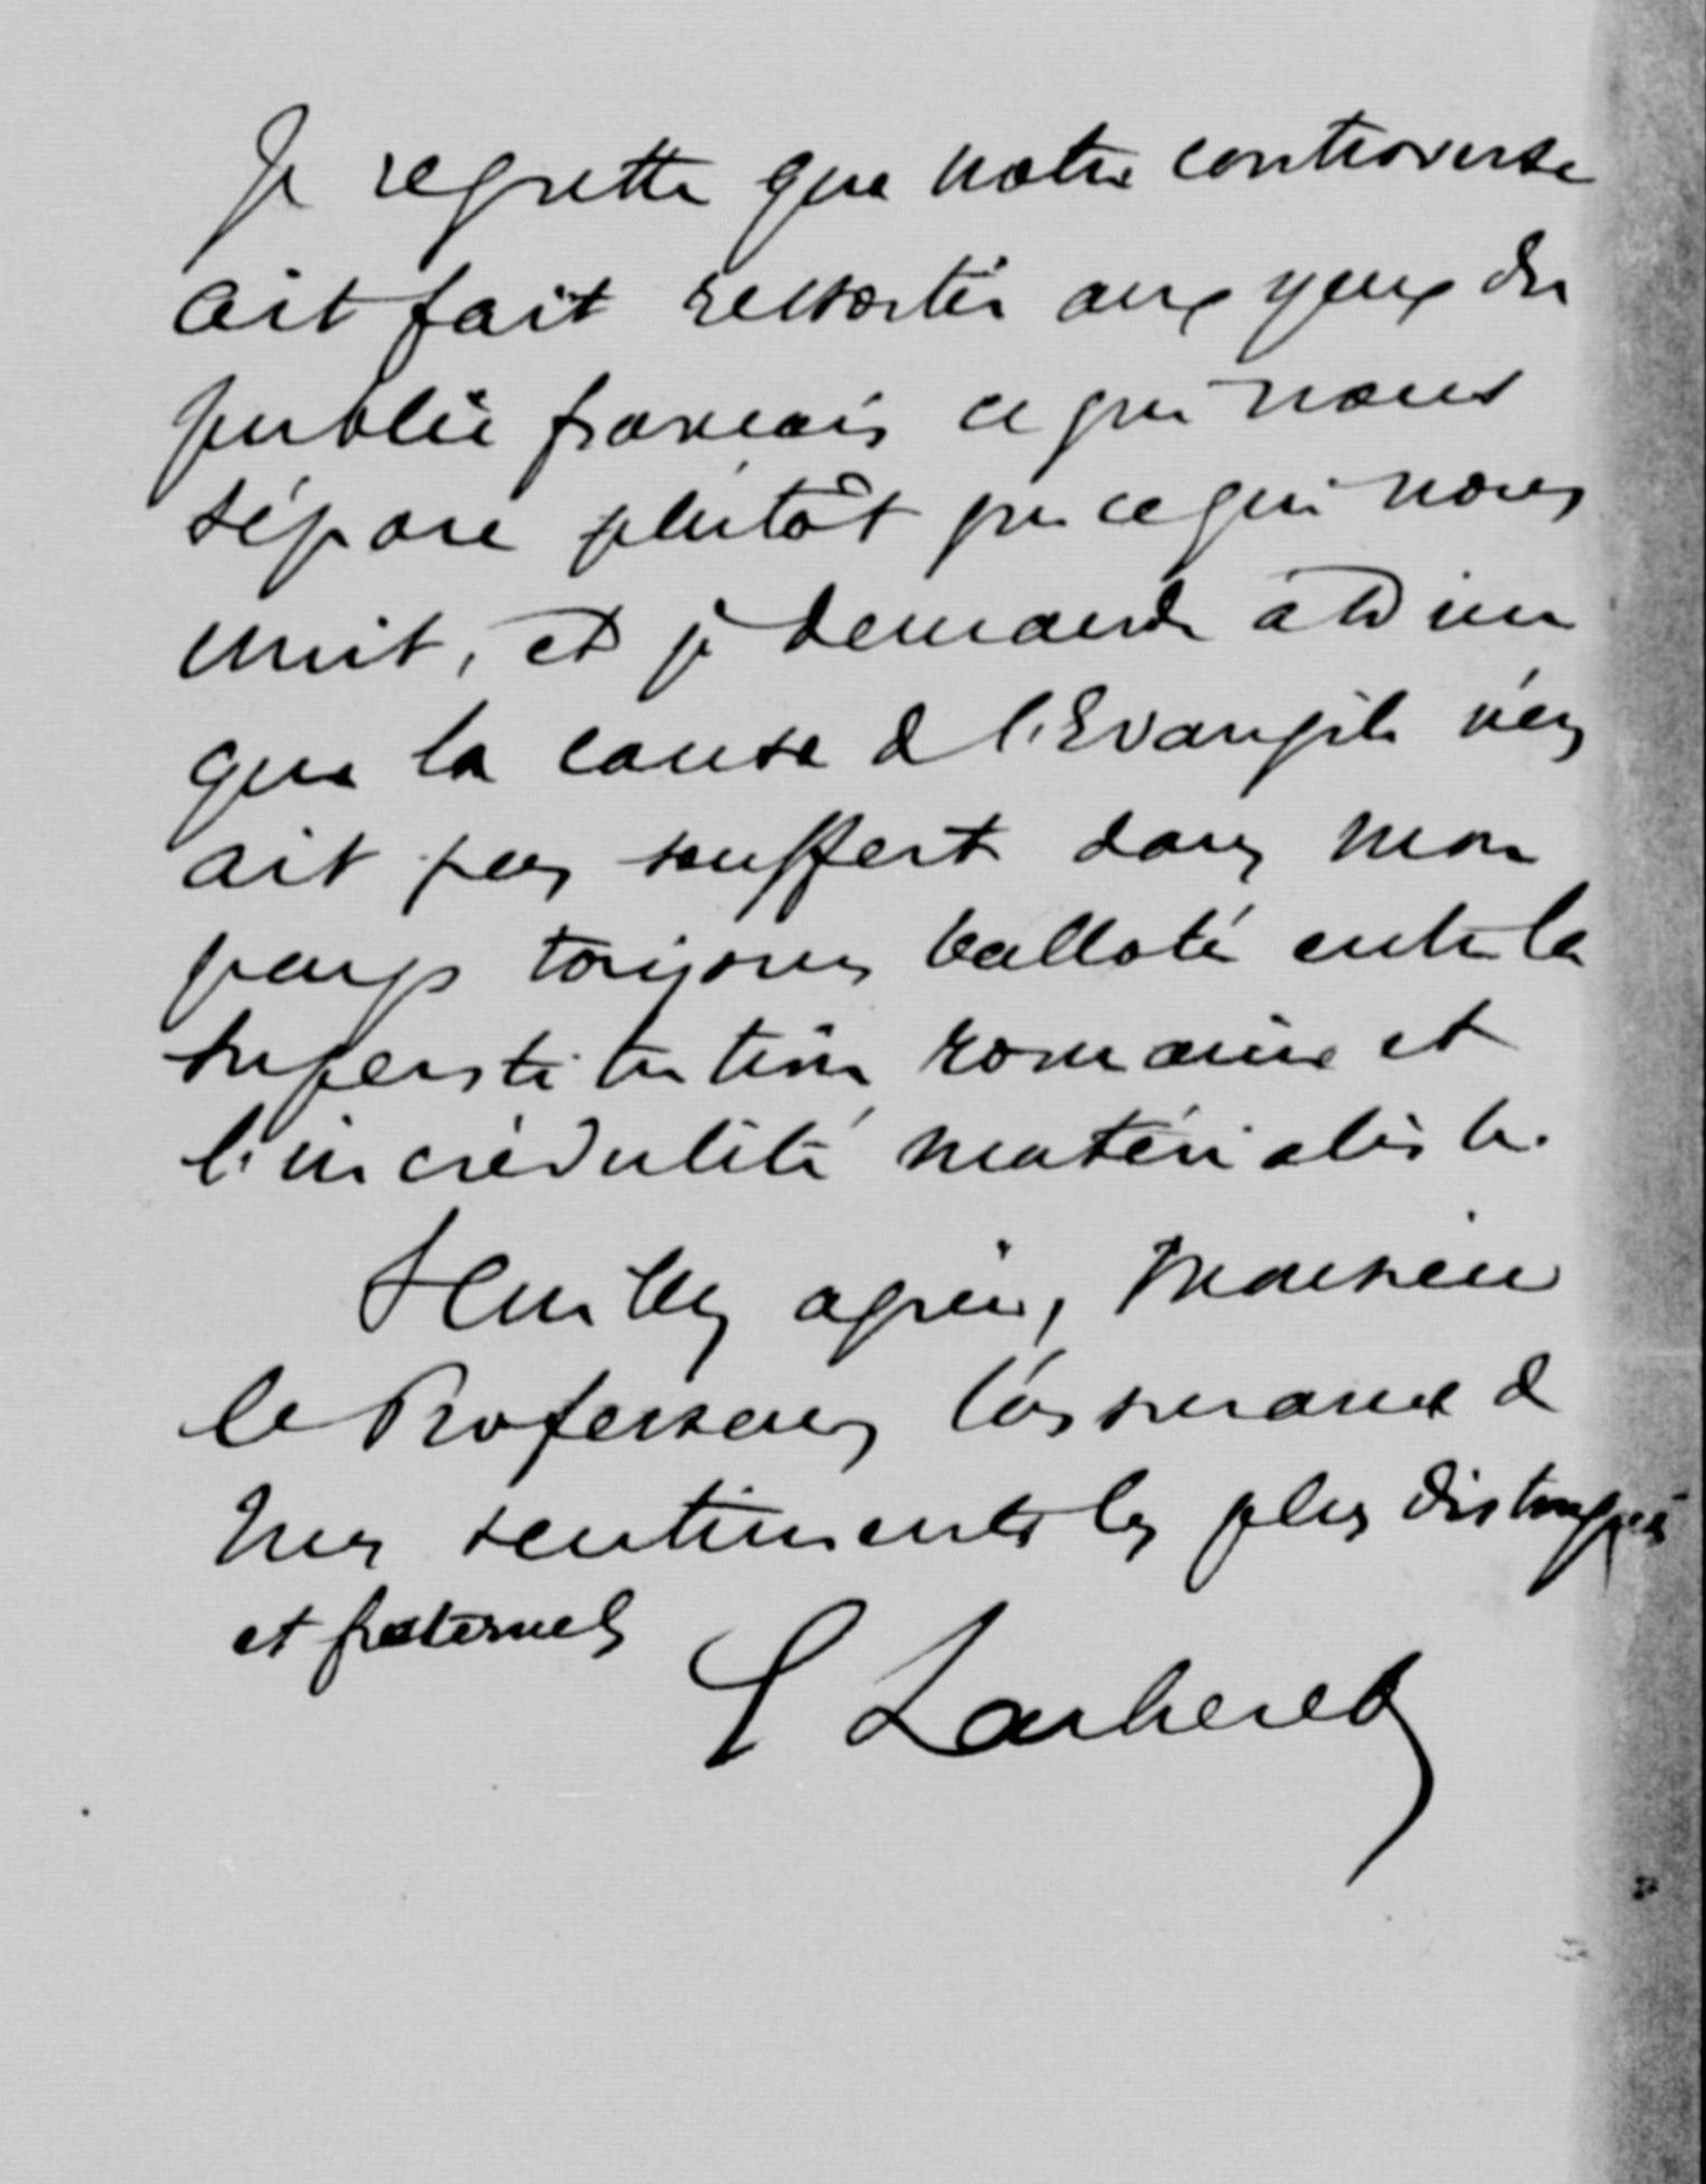 Je regrette que notre controverse
ait fait ressortir aux yeux du
public français ce qui nous
sépare plutôt que ce qui nous
unit, et je demande à Dieu
que la cause de l'Evangile n'en
ait pas souffert dans mon
pays toujours balloté entre la
superstitution romaine et
l'incrédulité matérialiste.
Veuillez agréer, Monsieur
le Professeur, l'assurance de
mes sentiments les plus distingués
et fraternels